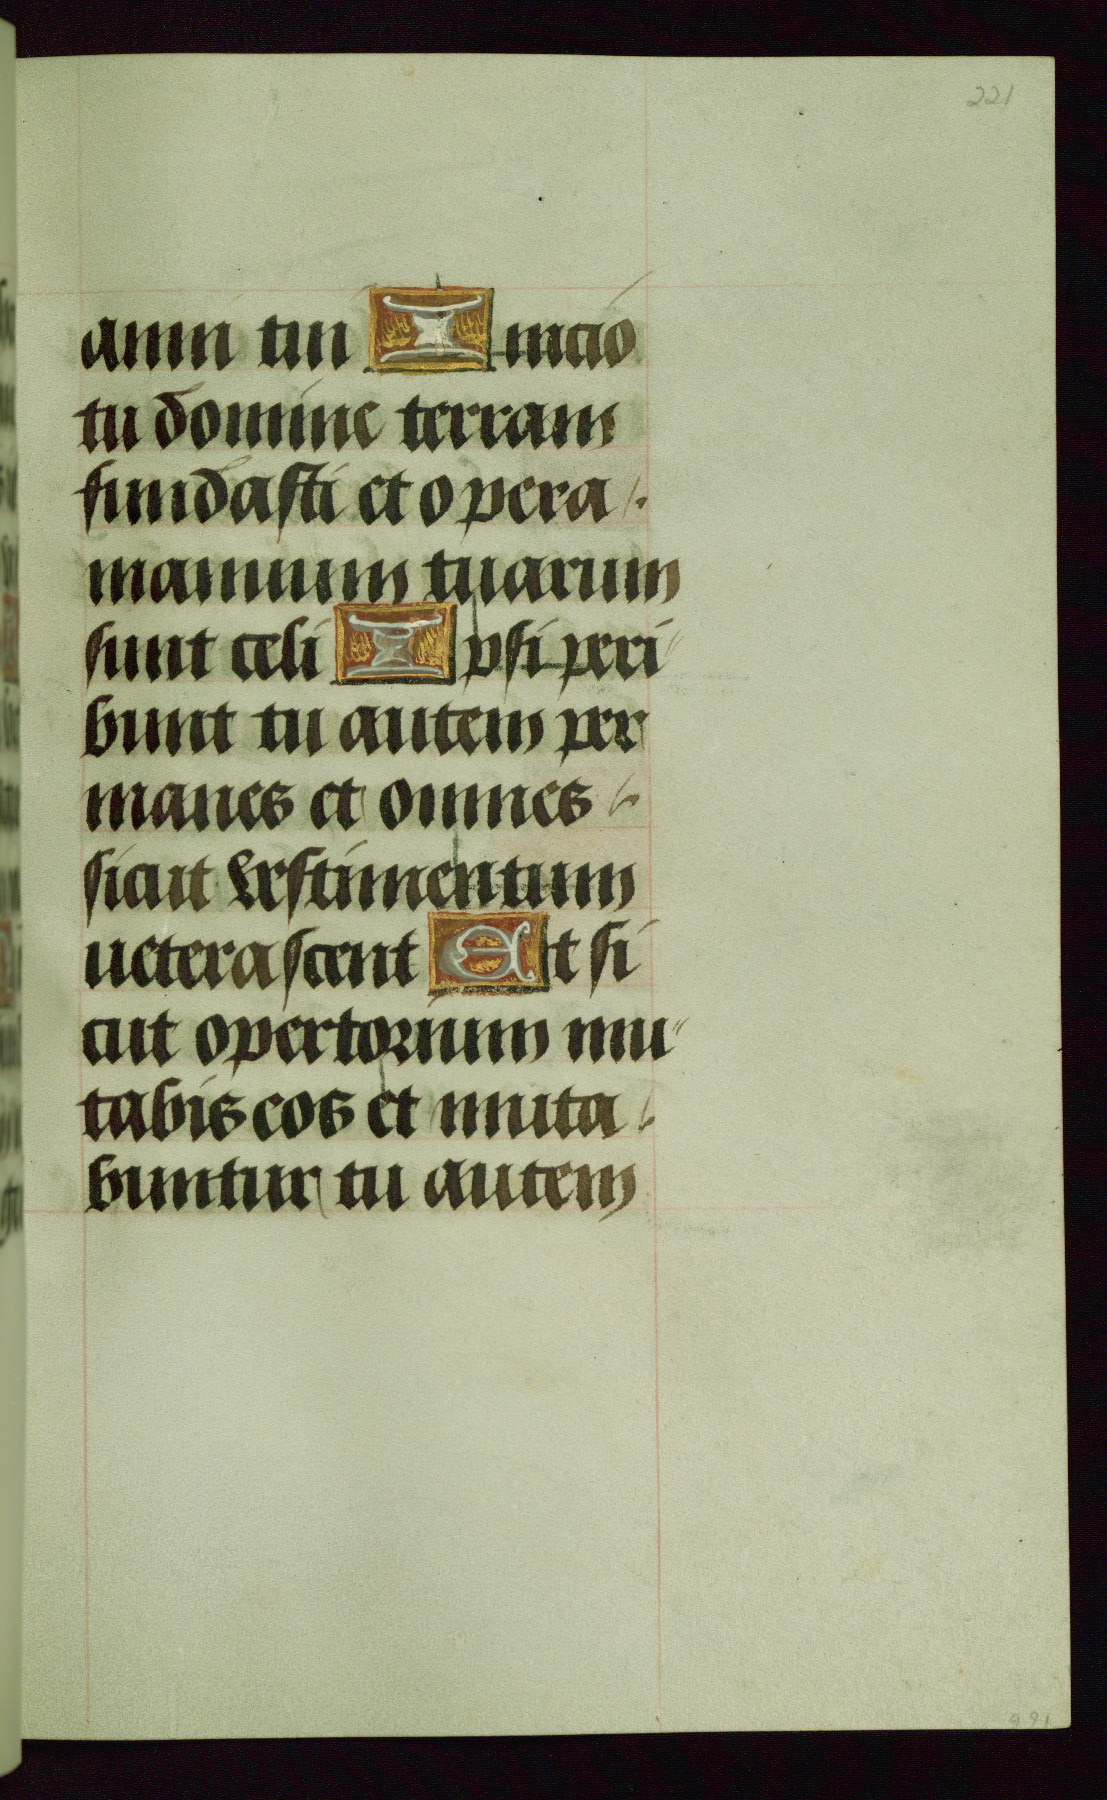 221
anni tui Inicio
tu domine terram
fundasti et opera
manuum tuarum
sunt celi Ipsi peri
bunt tu autem per
manes et omnes
sicut vestimentum
ueterascent Et si
cut opertorium mu
tabis eos et muta
buntur tu autem